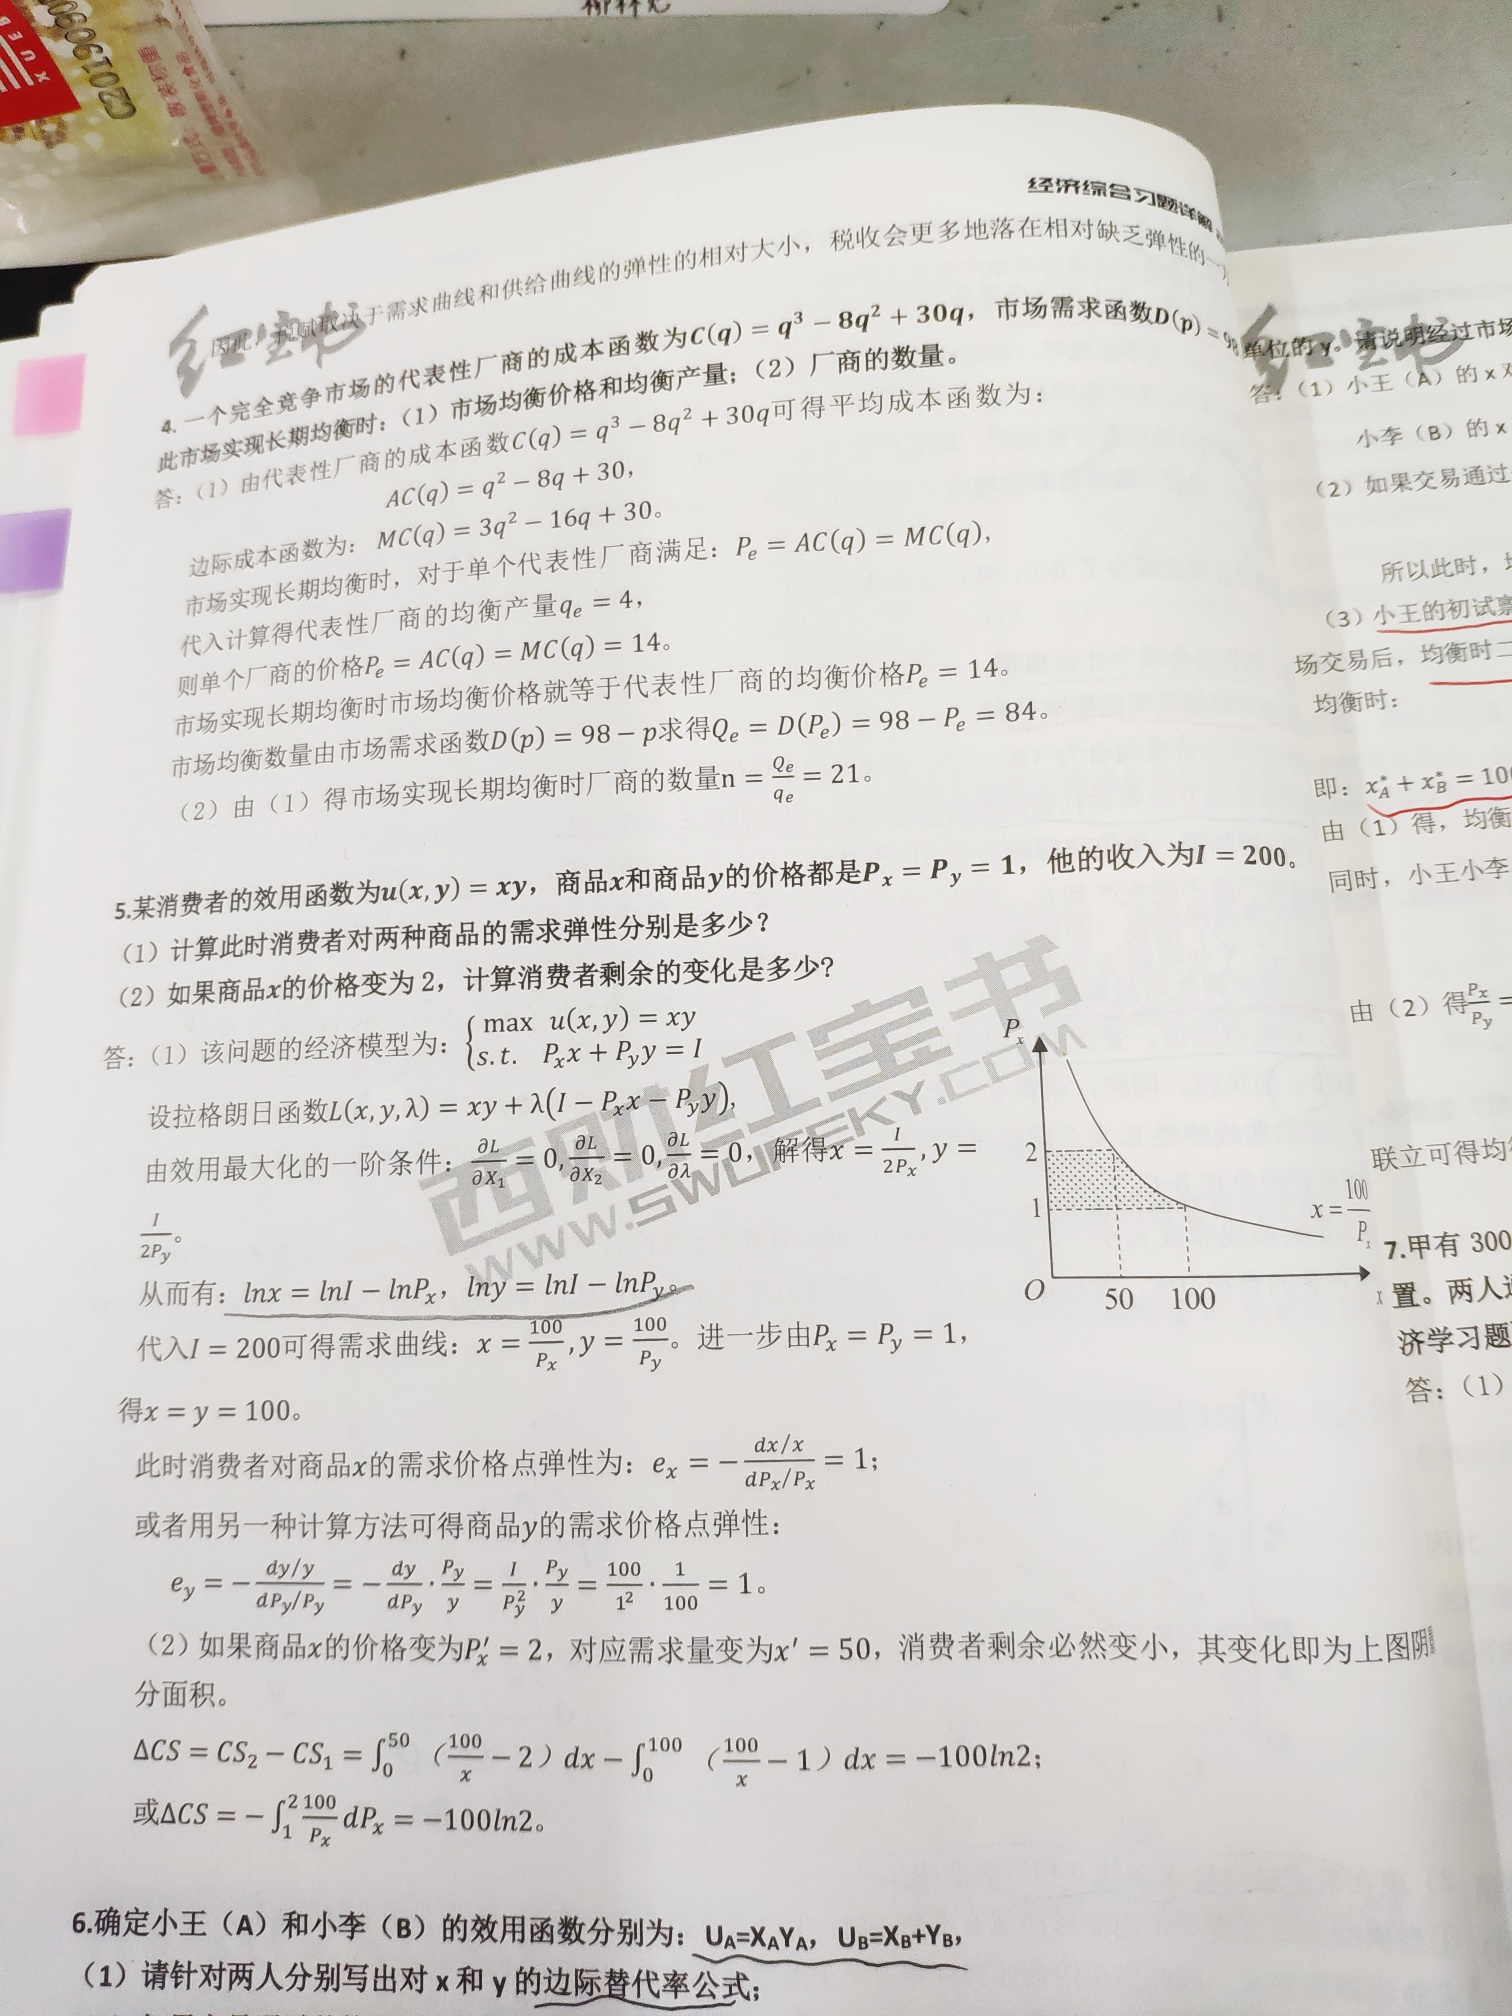 柳林
XUE
C2019090
经济综合习题详解
因此，税赋取决于需求曲线和供给曲线的弹性的相对大小，税收会更多地落在相对缺乏弹性的一
红宝书
4.一个完全竞争市场的代表性厂商的成本函数为C(q) = q³ − 8q² + 30q，市场需求函数D(p) = 98
此市场实现长期均衡时：（1）市场均衡价格和均衡产量；（2）厂商的数量。
答：（1）由代表性厂商的成本函数C(q) = q³ − 8q² + 30q可得平均成本函数为：
AC(q) = q² − 8q + 30，
边际成本函数为： MC(q) = 3q² − 16q + 30。
市场实现长期均衡时，对于单个代表性厂商满足：Pₑ = AC(q) = MC(q)，
代入计算得代表性厂商的均衡产量qₑ = 4，
则单个厂商的价格Pₑ = AC(q) = MC(q) = 14。
市场实现长期均衡时市场均衡价格就等于代表性厂商的均衡价格Pₑ = 14。
市场均衡数量由市场需求函数D(p) = 98 − p求得Qₑ = D(Pₑ) = 98 − Pₑ = 84。
（2）由（1）得市场实现长期均衡时厂商的数量n = Qₑ/qₑ = 21。
5.某消费者的效用函数为u(x, y) = xy，商品x和商品y的价格都是Pₓ = P_y = 1，他的收入为I = 200。
（1）计算此时消费者对两种商品的需求弹性分别是多少？
（2）如果商品x的价格变为 2，计算消费者剩余的变化是多少？
答：（1）该问题的经济模型为：{max u(x, y) = xy
s.t. Pₓx + P_y y = I
设拉格朗日函数L(x, y, λ) = xy + λ(I − Pₓx − P_y y),
由效用最大化的一阶条件：∂L/∂X₁ = 0, ∂L/∂X₂ = 0, ∂L/∂λ = 0，解得x = I/2Pₓ, y =
I/2P_y。
从而有：lnx = lnI − lnPₓ，lny = lnI − lnP_y。
代入I = 200可得需求曲线：x = 100/Pₓ, y = 100/P_y。进一步由Pₓ = P_y = 1，
得x = y = 100。
Pₓ
2
1
O
50 100
x = 100/Pₓ
x
西财红宝书
WWW.SWUFEKY.COM
此时消费者对商品x的需求价格点弹性为：eₓ = − (dx/x)/(dPₓ/Pₓ) = 1；
或者用另一种计算方法可得商品y的需求价格点弹性：
e_y = − (dy/y)/(dP_y/P_y) = − dy/dP_y · P_y/y = I/P_y² · P_y/y = 100/1² · 1/100 = 1。
（2）如果商品x的价格变为Pₓ′ = 2，对应需求量变为x′ = 50，消费者剩余必然变小，其变化即为上图阴
分面积。
ΔCS = CS₂ − CS₁ = ∫₀⁵⁰ （100/x − 2）dx − ∫₀¹⁰⁰ （100/x − 1）dx = −100ln2；
或ΔCS = − ∫₁² 100/Pₓ dPₓ = −100ln2。
6.确定小王（A）和小李（B）的效用函数分别为：U_A=X_AY_A，U_B=X_B+Y_B，
（1）请针对两人分别写出对 x 和 y 的边际替代率公式；
单位的 y。请说明经过市场
红宝书
答：（1）小王（A）的 x 对
小李（B）的 x
（2）如果交易通过
所以此时，
（3）小王的初试禀
场交易后，均衡时二
均衡时：
即：x*_A + x*_B = 100
由（1）得，均衡
同时，小王小李
由（2）得Pₓ/P_y =
联立可得均
7.甲有 300
置。两人
济学习题
答：（1）